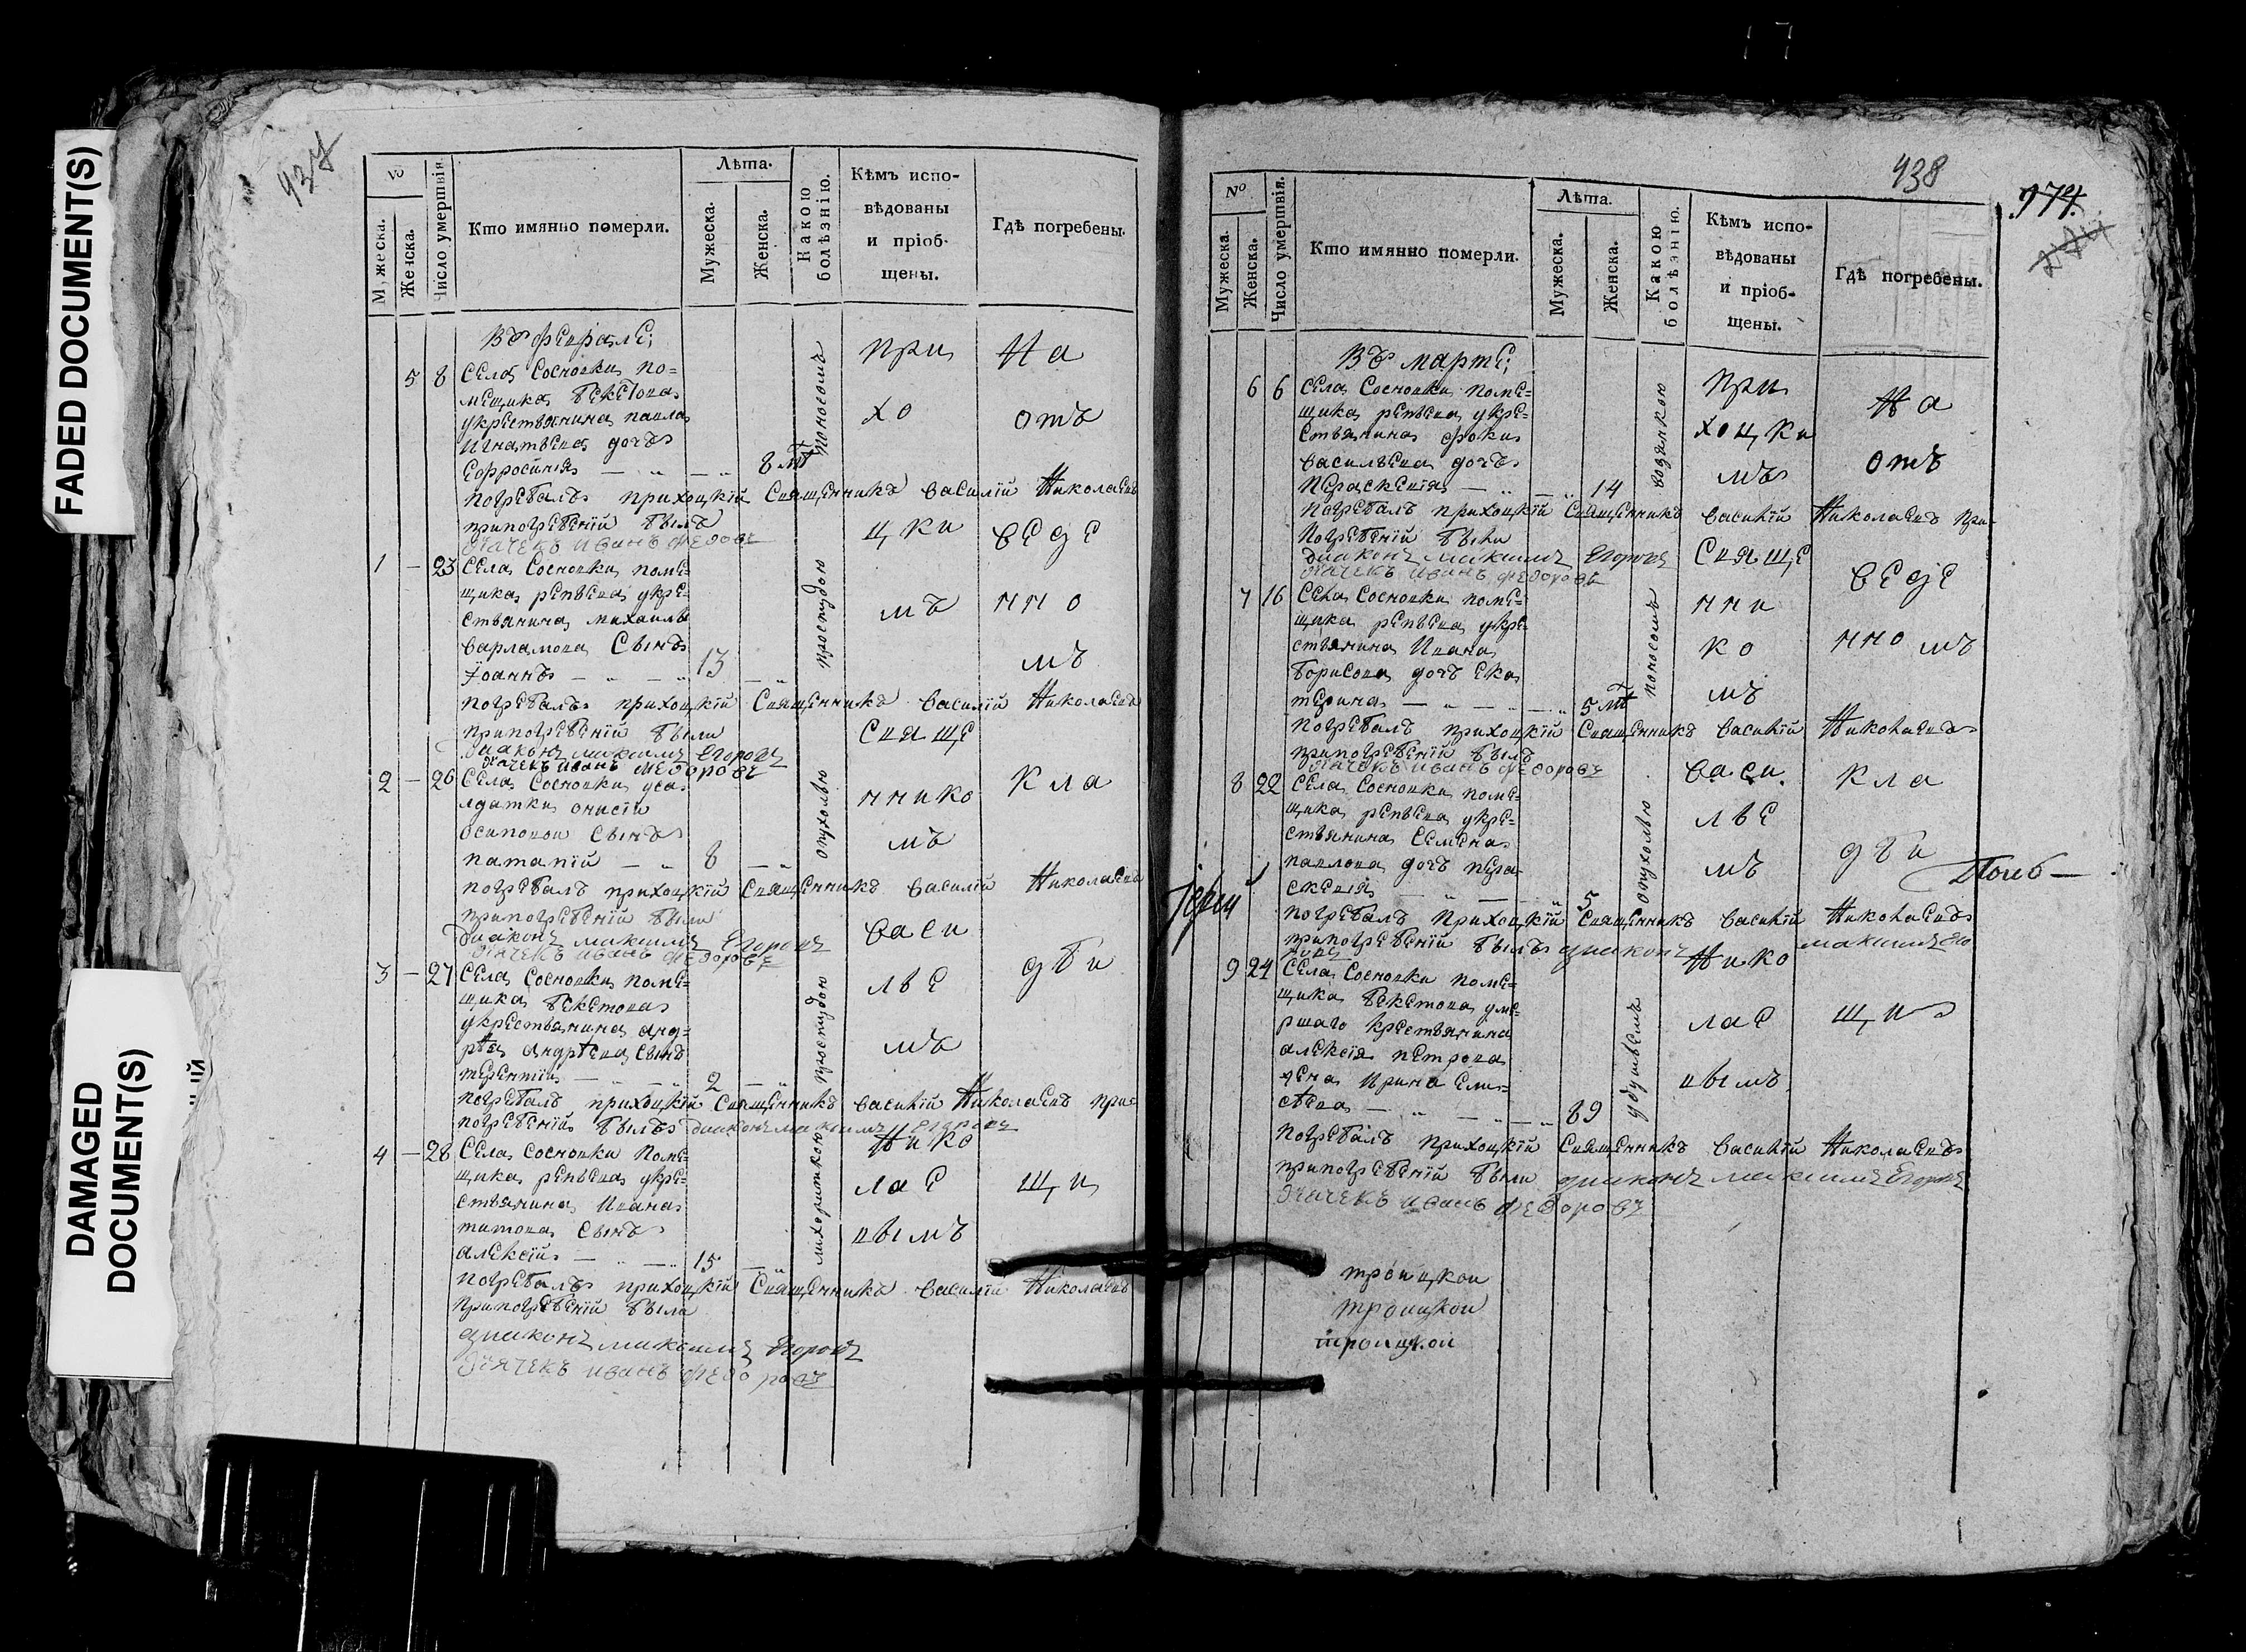 FADED DOCUMENT(S)
DAMAGED
DOCUMENT(S)
437
№
Мужеска.
Женска.
Число умертвія
Кто имянно померли.
Лѣта.
Мужеска.
Женска.
Какою
болѣзнію.
Кѣмъ испо-
вѣдованы
и пріоб-
щены.
Гдѣ погребены.
въ феврале;
5 8 Села Сосновки по=
мещика бекетова
укрестьянина павла
игнатьева дочь
ефросиния — „ — „ 8 мт поносомъ
погребалъ прихоцкій священникъ василій Николаевъ
припогребеніи былъ
дьячекъ иванъ федоровъ
1 — 23 Села Сосновки поме=
щика репьева укре=
стьянина михаилы
варламова сынъ
Іоаннъ — „ — „ 13 — „ простудою
погребалъ прихоцкій священникъ василій Николаевъ
припогребеніи были
диаконъ максимъ Егоровъ
дьячекъ иванъ федоровъ
2 — 26 Села Сосновки уса=
лдатки анисіи
осиповой сынъ
патапій — „ 8 — „ опухолью
погребалъ прихоцкій священникъ василій Николаевъ
припогребеніи были
диаконъ максимъ Егоровъ
дьячекъ иванъ федоровъ
3 — 27 Села Сосновки поме=
щика бекетова
укрестьянина анд=
рѣя андрѣева сынъ
терентій — „ — „ 2 — „ простудою
погребалъ прихоцкій священникъ василій Николаевъ при=
погребеніи былъ диаконъ максимъ Егоровъ
4 — 28 Села Сосновки поме=
щика репьева укре=
стьянина ивана
титова сынъ
алексій — „ — „ 15 — „ лихораткою
погребалъ прихоцкій священникъ василій Николаевъ
припогребеніи была
диаконъ максимъ Егоровъ
дьячекъ иванъ федоровъ
при
хо
цки
мъ
свяще
ннико
мъ
васи
лье
мъ
Нико
лае
вымъ
На
отъ
веде
нно
мъ
кла
дби
щи
438
974.
№
Мужеска.
Женска.
Число умертвія.
Кто имянно померли.
Лѣта.
Мужеска.
Женска.
Какою
болѣзнію.
Кѣмъ испо-
вѣдованы
и пріоб-
щены.
Гдѣ погребены.
въ марте;
6 6 Села Сосновки поме=
щика репьева укре=
стьянина фоки
васильева дочь
Пераскевия — „ — „ 14 водянкою
погребалъ прихоцкій священникъ василій Николаевъ при=
погребеніи были
диаконъ максимъ Егоровъ
дьячекъ иванъ федоровъ
7 16 Села Сосновки поме=
щика репьева укре=
стьянина ивана
борисова дочь ека
терина — „ — „ — „ 5 мт поносомъ
погребалъ прихоцкій священникъ василій Николаевъ
припогребеніи былъ
дьячекъ иванъ федоровъ
8 22 Села Сосновки поме=
щика репьева укре=
стьянина семена
павлова дочь пера
скевия — „ — „ 5 опухолью
погребалъ прихоцкій священникъ василій Николаевъ
припогребеніи былъ диаконъ максимъ Его
ровъ
9 24 Села Сосновки поме=
щика бекетова уме=
ршаго крестьянина
алексія петрова
жена Ирина ели=
сѣева — „ — „ — „ 89 удушьемъ
погребалъ прихоцкій священникъ василій Николаевъ
припогребеніи были диаконъ максимъ Егоровъ
дьячекъ иванъ федоровъ
при
хоцки
мъ
свяще
нни
ко
мъ
васи
лье
мъ
Нико
лае
вымъ
На
отъ
веде
нно мъ
кла
дби
щи
іерей
троицкои
троицкои
троицкои